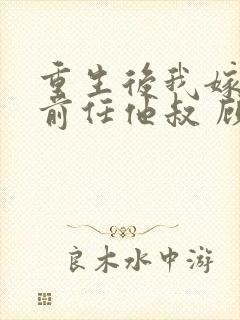 重生後我嫁
前任他叔 顾
良木水中游